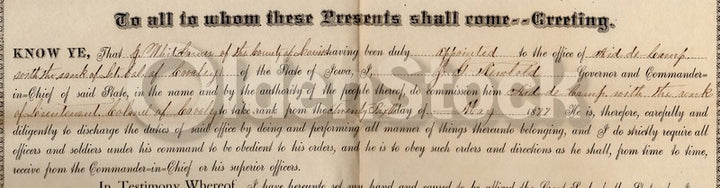 To all to whom these Presents shall come--Greeting.
KNOW YE, That G Whit of the County of having been duly appointed to the office of Aid de Camp
with the rank of Lt. Col of Cavalry of the State of Iowa, I, J. G. Newbold Governor and Commander-
in-Chief of said State, in the name and by the authority of the people thereof, do commission him Aid de Camp with the rank
of Lieutenant Colonel of Cavalry to take rank from the Twenty day of May 1877 He is, therefore, carefully and
diligently to discharge the duties of said office by doing and performing all manner of things thereunto belonging, and I do strictly require all
officers and soldiers under his command to be obedient to his orders, and he is to obey such orders and directions as he shall, from time to time,
receive from the Commander-in-Chief or his superior officers.
In Testimony Whereof, I have hereunto set my hand and caused to be affixed the Great Seal of the State of